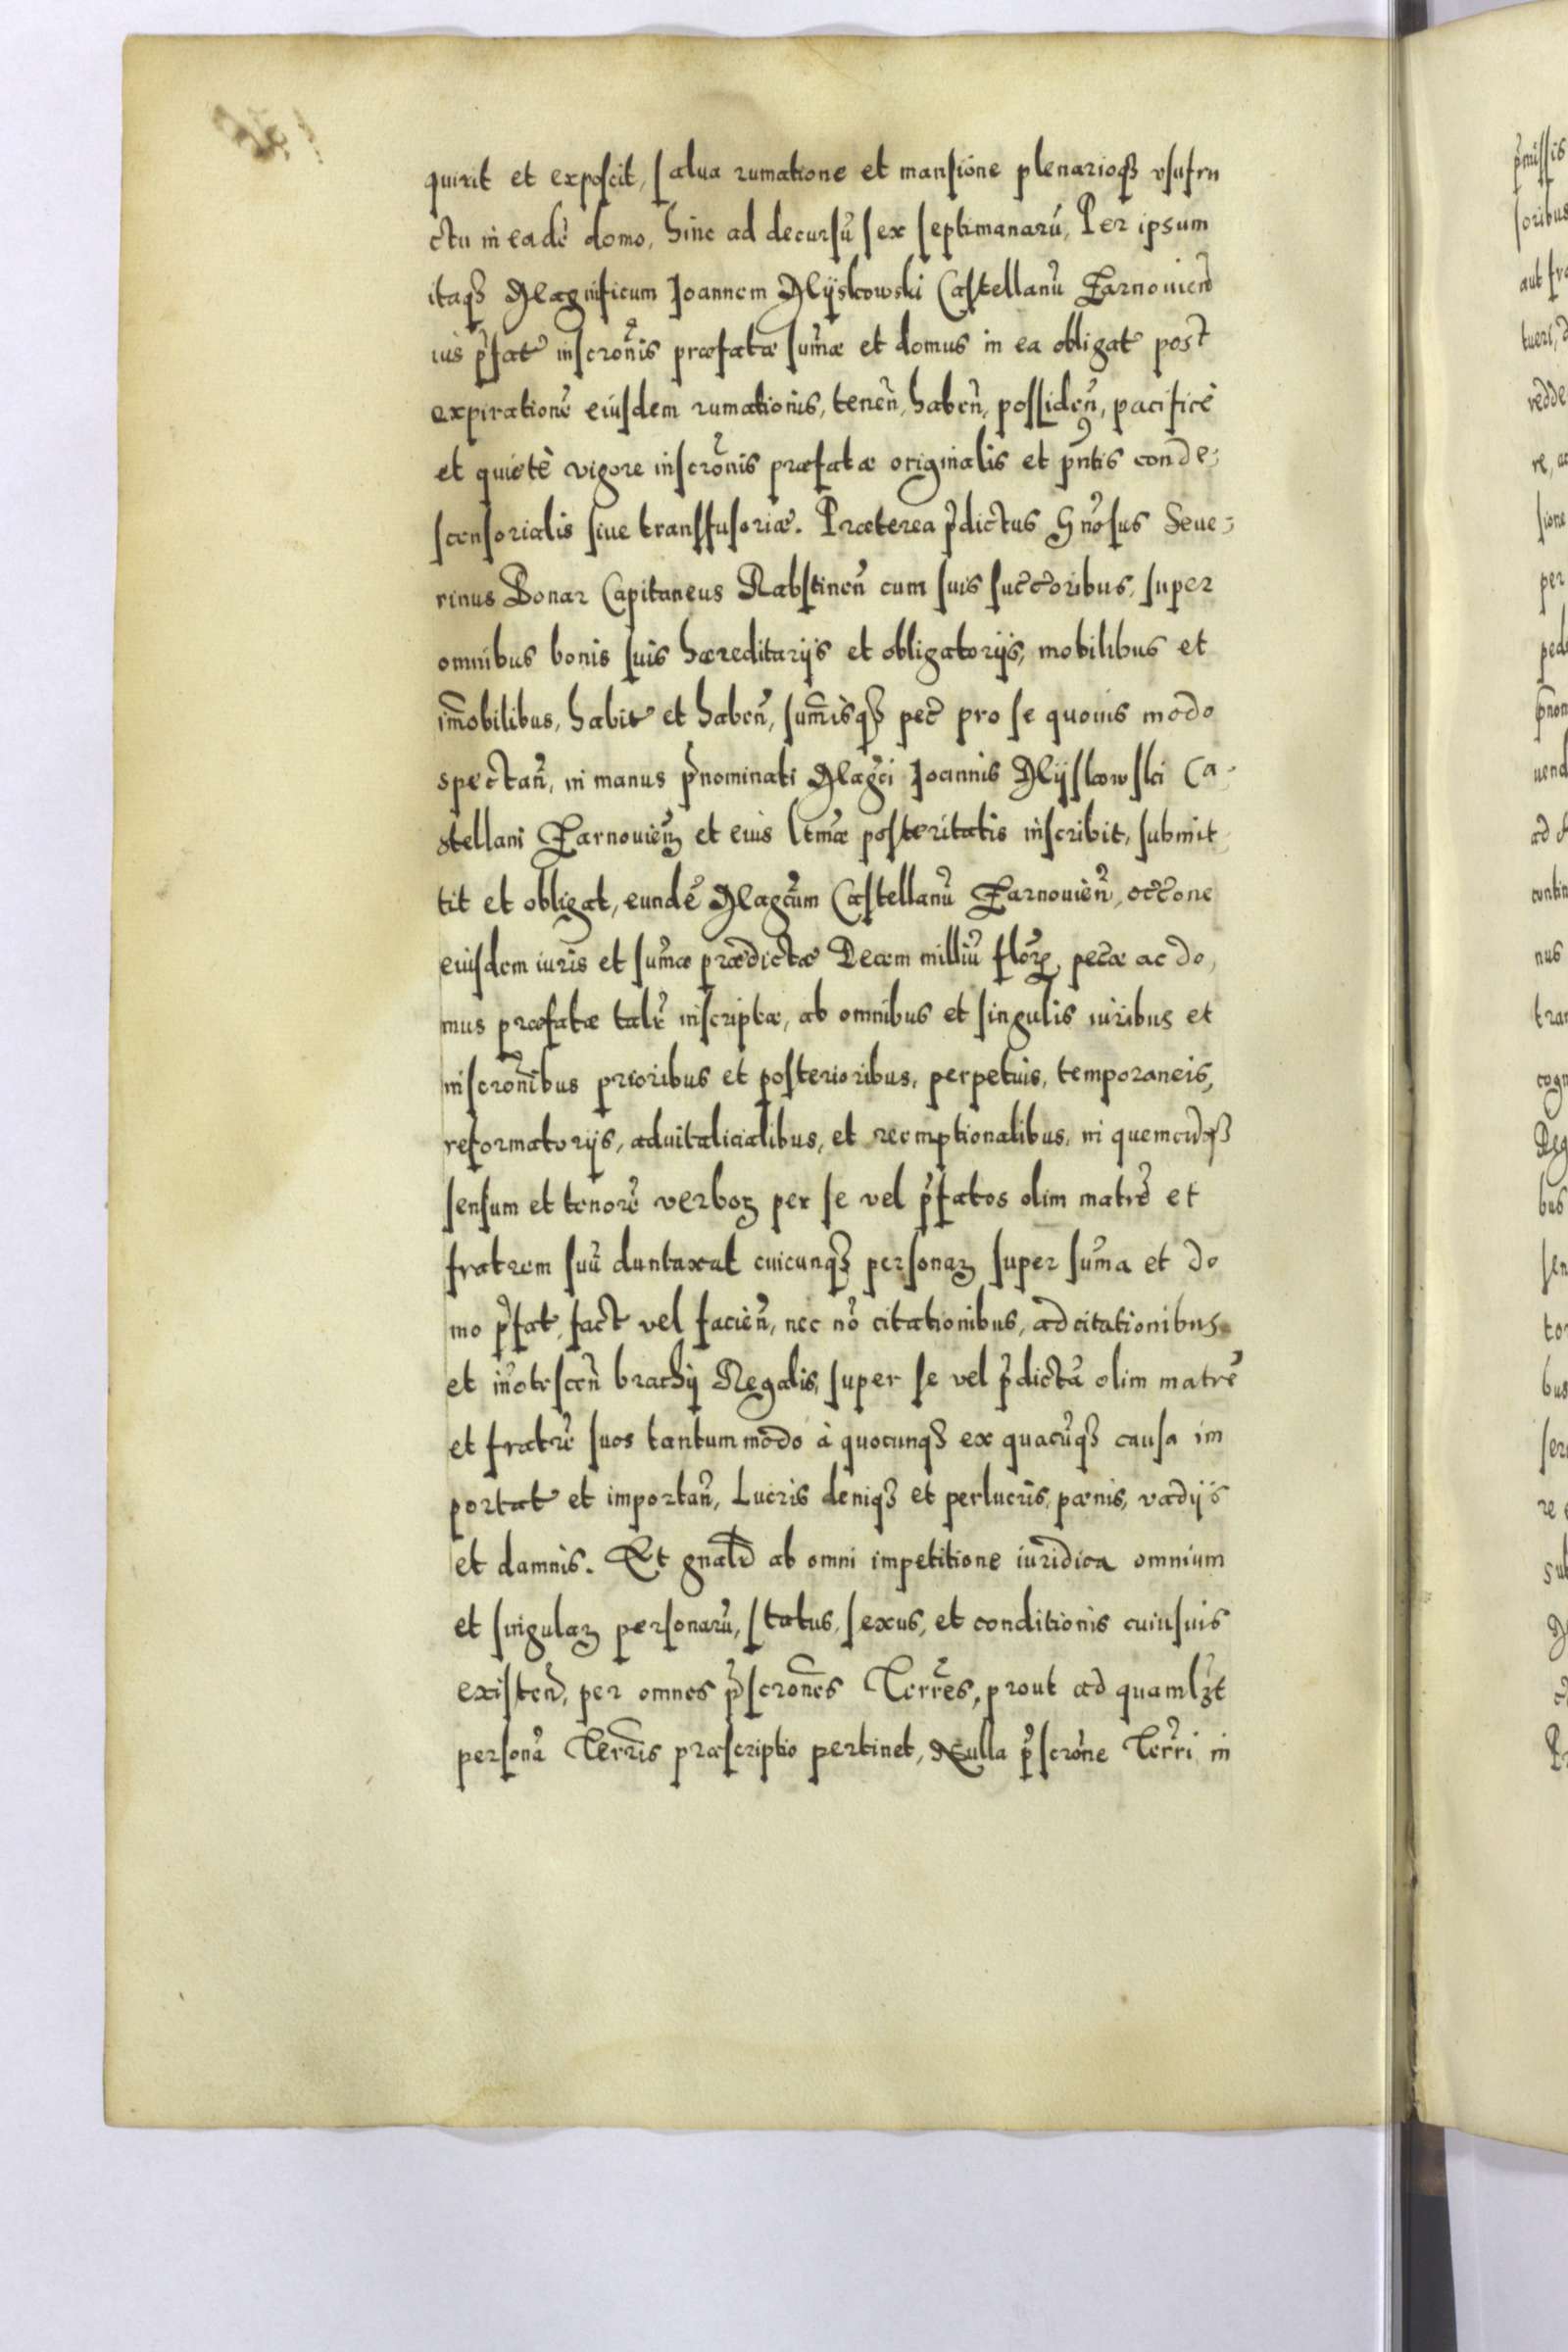 quirit et exposcit, salua rumatione et mansione plenarioq₃ vsufru
ctu in eadē domo, hinc ad decursū sex septimanarū, Per ipsum
itaq₃ Magnificum Joannem Mÿskowski Castellanū Zarnouieñ
ius p̃fat inscrōnis præfatæ sum̃æ et domus in ea obligat post
expirationē eiusdem rumationis, teneñ, habeñ, possideñ, pacificè
et quietè vigore inscrōnis præfatæ originalis et pñtis conde-
scensorialis siue transfusoriæ. Præterea p̃dictus Gñosus Seue-
rinus Bonar Capitaneus Rabstineñ cum suis succ̃oribus, super
omnibus bonis suis hæreditarijs et obligatorijs, mobilibus et
im̃obilibus, habit et habeñ, sum̃isq₃ pec̃ pro se quouis modo
spectañ, in manus p̃nominati Mag̃ci Joannis Mÿskowski Ca-
stellani Zarnouieñ et eius ltmæ posteritatis inscribit, submit
tit et obligat, eundē Mag̃cum Castellanū Zarnouieñ, occ̃one
eiusdem iuris et sum̃æ prædictæ Decem milliū flor̃, pec̃æ ac do,
mus præfatæ talr̃ inscriptæ, ab omnibus et singulis iuribus et
inscrōnibus prioribus et posterioribus, perpetuis, temporaneis,
reformatorijs, aduitalicialibus, et reemptionalibus, in quemcūq₃
sensum et tenorē verboꝝ per se vel p̃fatos olim matrē et
fratrem suū duntaxat cuicunq₃ personaꝝ super sum̃a et do
mo p̃fat, fact vel facieñ, nec nō citationibus, adcitationibus
et iñotesceñ brachij Regalis, super se vel p̃dictā olim matrē
et fratrē suos tantummodo à quocunq₃ ex quacūq₃ causa im
portat et importañ, Lucris deniq₃ et perlucris, pænis, vadijs
et damnis. Et gñalr̃ ab omni impetitione iuridica omnium
et singulaꝝ personarū, status, sexus, et conditionis cuiusuis
existeñ, per omnes p̃scrōnes Terr̃es, prout ad quamlꝫt
personā Terr̃is præscriptio pertinet, Nulla p̃scrōne Terr̃i in